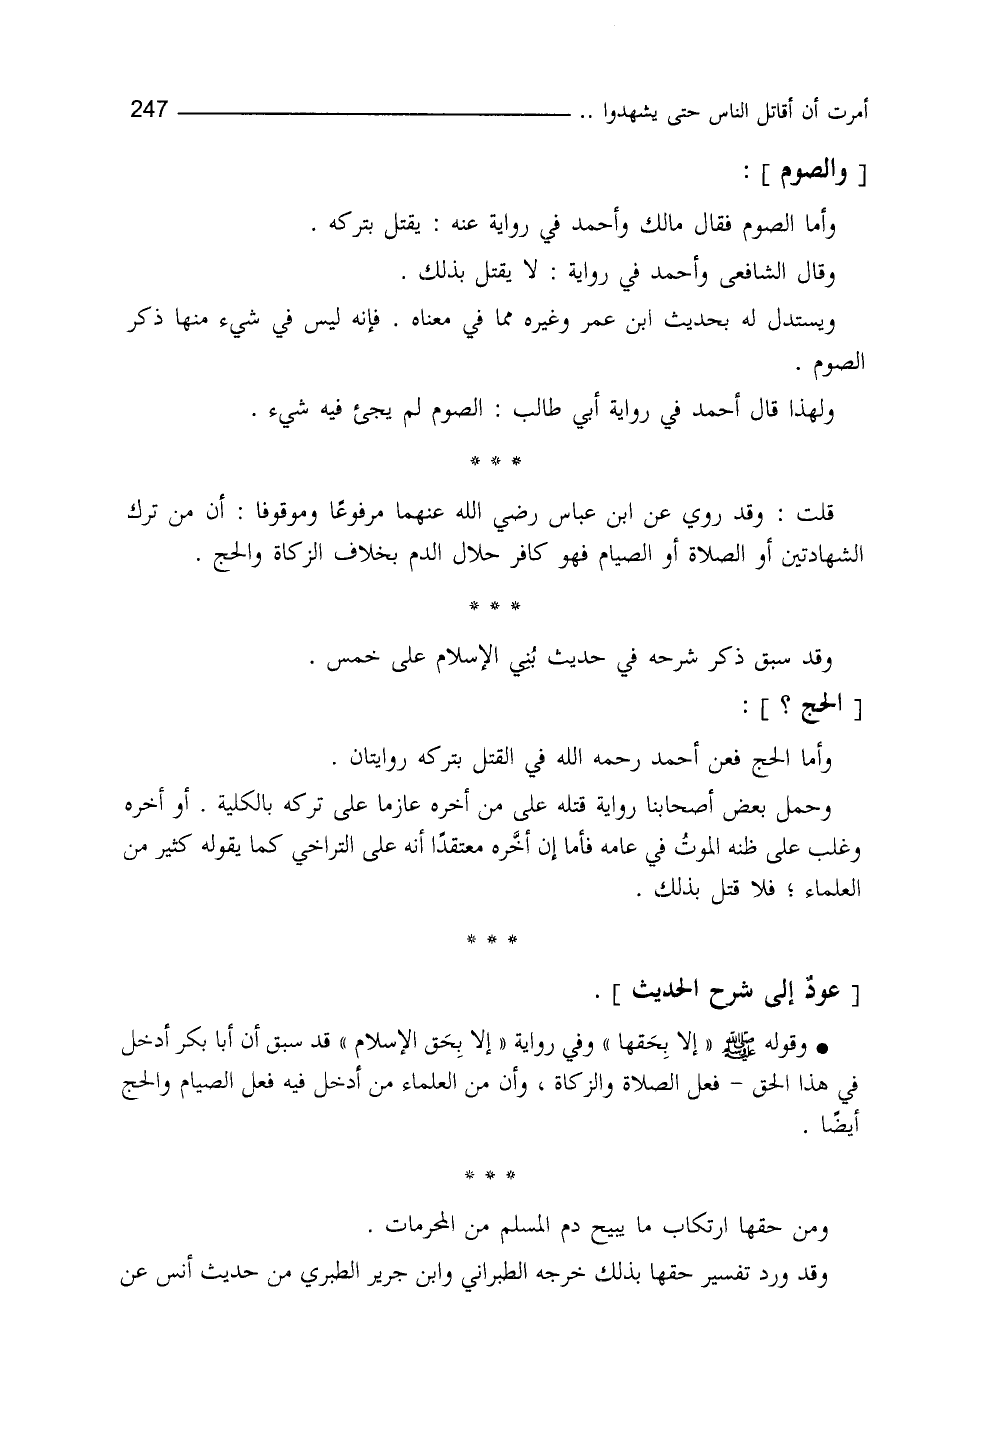 أمرت أن أقاتل الناس حتى يشهدوا .. 247
[ والصوم ] :
وأما الصوم فقال مالك وأحمد في رواية عنه : يقتل بتركه .
وقال الشافعى وأحمد في رواية : لا يقتل بذلك .
ويستدل له بحديث ابن عمر وغيره مما في معناه . فإنه ليس في شيء منها ذكر
الصوم .
ولهذا قال أحمد في رواية أبي طالب : الصوم لم يجئ فيه شيء .
* * *
قلت : وقد روي عن ابن عباس رضي الله عنهما مرفوعًا وموقوفا : أن من ترك
الشهادتين أو الصلاة أو الصيام فهو كافر حلال الدم بخلاف الزكاة والحج .
* * *
وقد سبق ذكر شرحه في حديث بُنِي الإسلام على خمس .
[ الحج ؟ ] :
وأما الحج فعن أحمد رحمه الله في القتل بتركه روايتان .
وحمل بعض أصحابنا رواية قتله على من أخره عازما على تركه بالكلية . أو أخره
وغلب على ظنه الموتُ في عامه فأما إن أخَّره معتقدًا أنه على التراخي كما يقوله كثير من
العلماء ؛ فلا قتل بذلك .
* * *
[ عودٌ إلى شرح الحديث ] .
● وقوله ﷺ « إلا بِحَقها » وفي رواية « إلا بِحَق الإسلام » قد سبق أن أبا بكر أدخل
في هذا الحق – فعل الصلاة والزكاة ، وأن من العلماء من أدخل فيه فعل الصيام والحج
أيضًا .
* * *
ومن حقها ارتكاب ما يبيح دم المسلم من المحرمات .
وقد ورد تفسير حقها بذلك خرجه الطبراني وابن جرير الطبري من حديث أنس عن